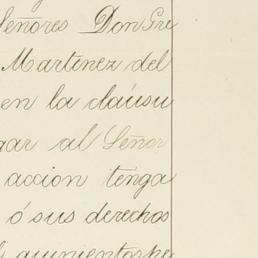 Señores Don Gre
Martinez del
en la cláusu
gar al Señor
accion tenga
ó sus derechos
quinientos pe